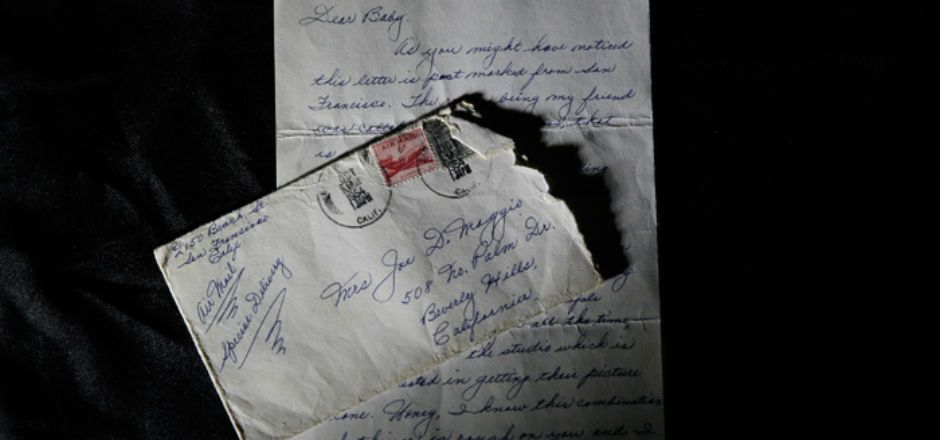 Dear Baby,
As you might have noticed
this letter is post marked from San
Francisco. The being my friend
was that
is
all the time,
the studio which is
in getting their picture
Honey, I know this combination
is rough on you and I
2150 Beach St.
San Francisco
Calif.
Air Mail
Special Delivery
AIR MAIL
6¢
CALIF.
CALIF.
Mrs Joe D. Maggio
508 No. Palm Dr.
Beverly Hills,
California